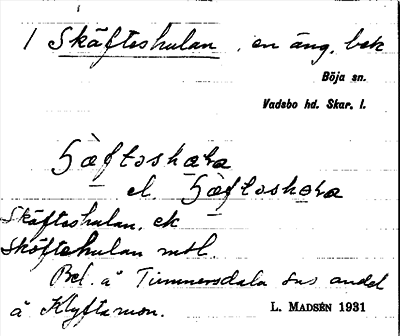 1 Skäfteshulan, en äng, bek
Böja sn.
Vadsbo hd. Skar. l.
el.
Skäfteshulan, ek
Sköftehulan mtl.
Bel. å Timmersdala sns andel
å Klyftamon.
L. MADSÉN 1931